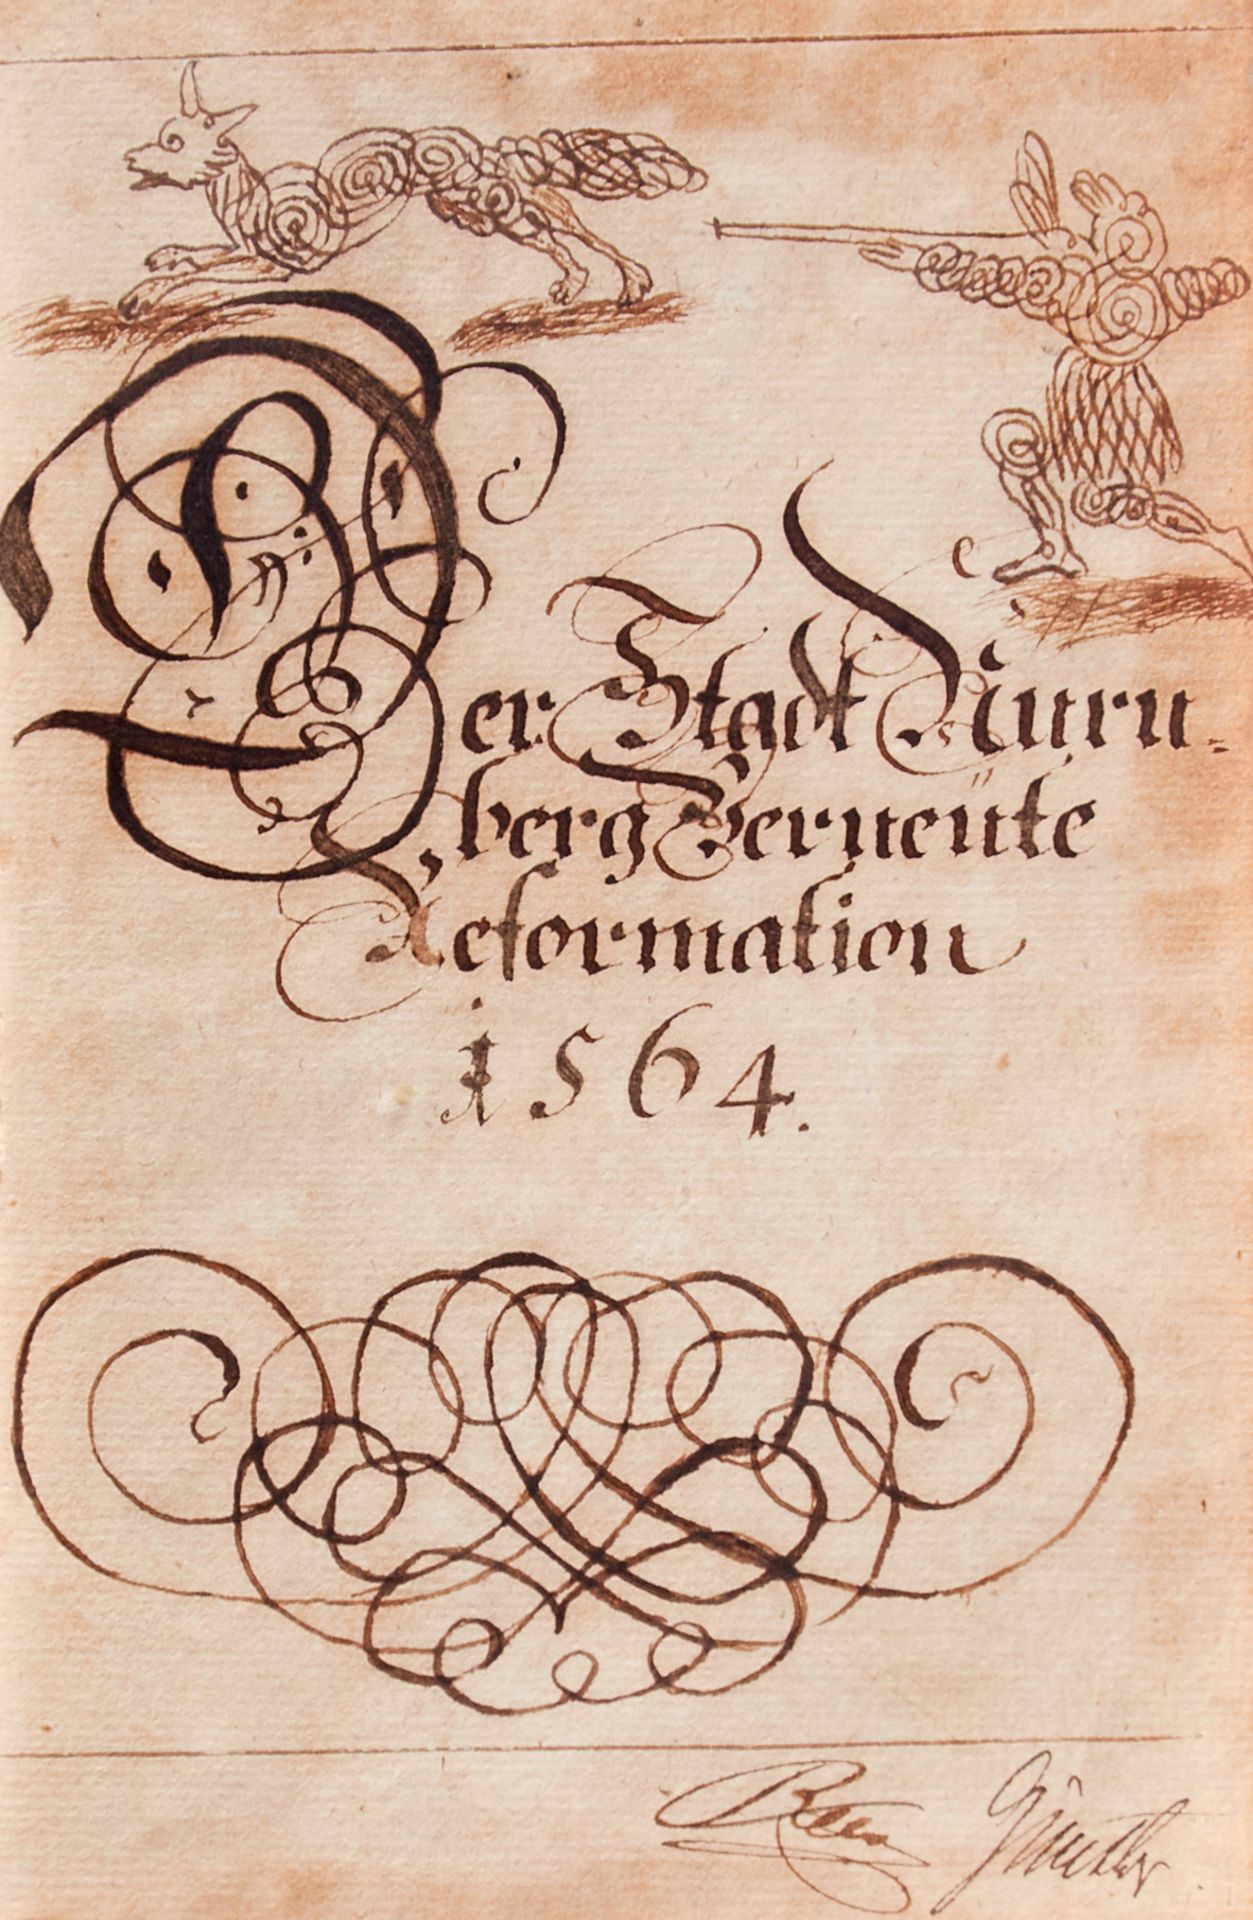 Der Stadt Nurn=
berg Verneüte
Reformation
1564.